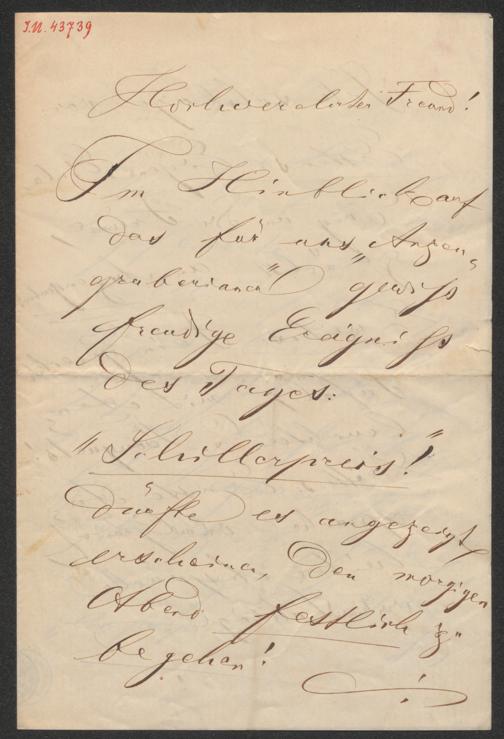 I.N. 43739
Hochverehrter Freund!
Im Hinblick auf
das für uns „Anzen-
gruberianer" gewiss
freudige Ereigniss
des Tages:
"Schillerpreis!"
dürfte es angezeigt
erscheinen, den morgigen
Abend festlich zu
begehen!